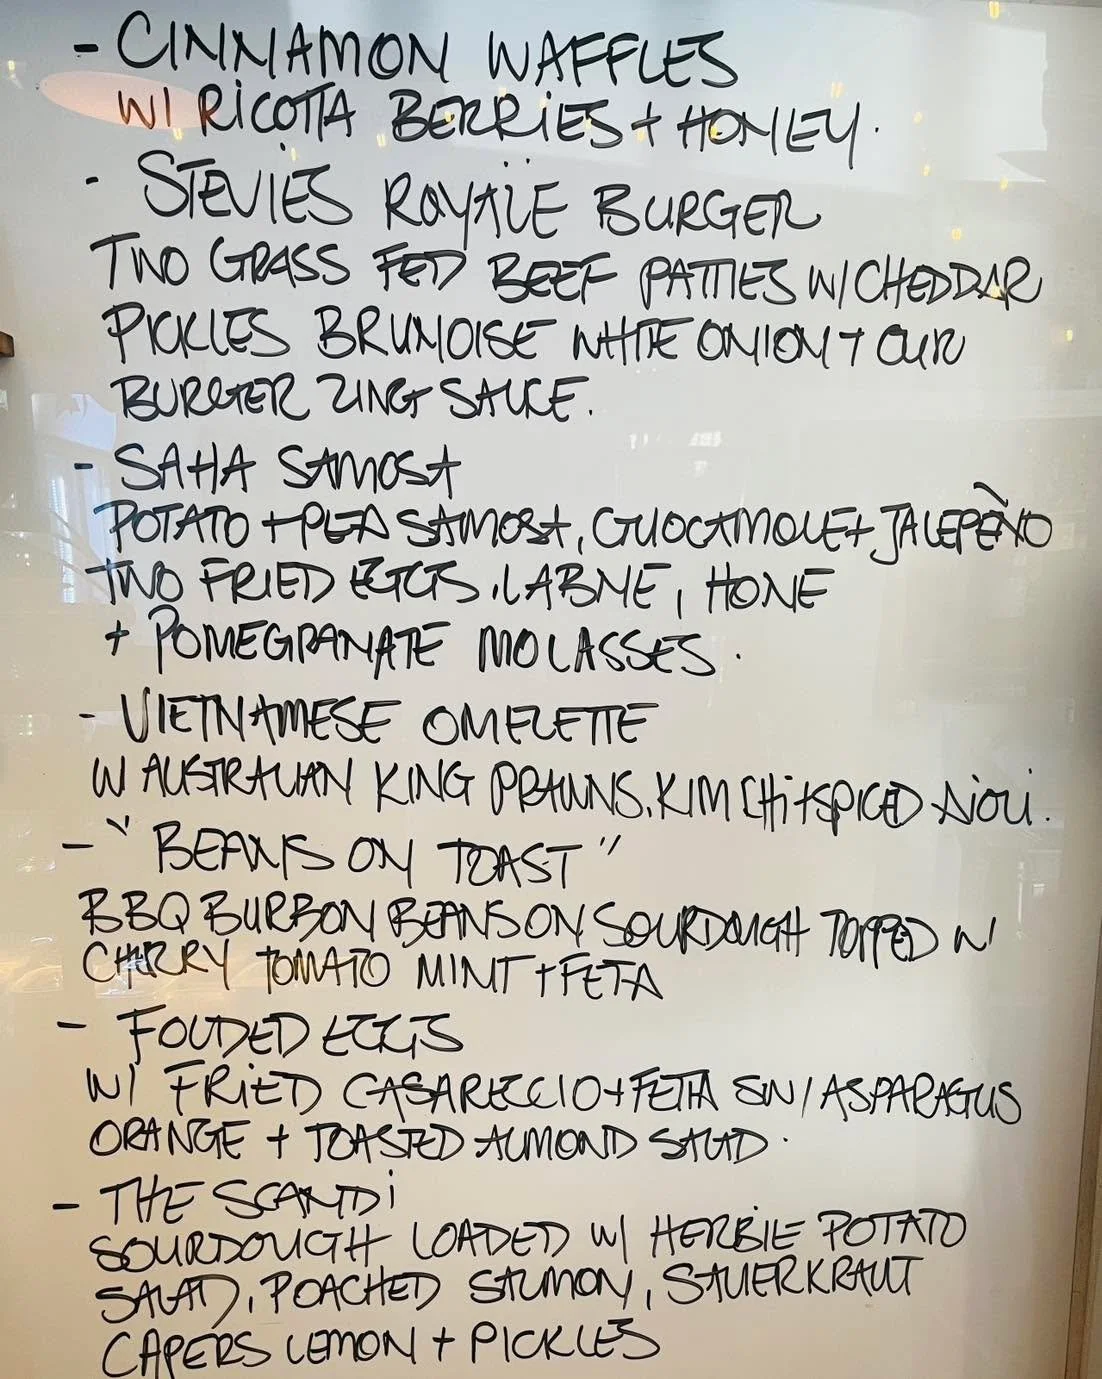 - CINNAMON WAFFLES
W/ RICOTTA BERRIES + HONEY.
- STEVIES ROYALE BURGER
TWO GRASS FED BEEF PATTIES W/ CHEDDAR
PICKLES BRUNOISE WHITE ONION + OUR
BURGER ZING SAUCE.
- SAHA SAMOSA
POTATO + PEA SAMOSA, GUOCAMOLE + JALEPEÑO
TWO FRIED EGGS, LABNE, HONE
+ POMEGRANATE MOLASSES.
- VIETNAMESE OMELETTE
W AUSTRALIAN KING PRAWNS, KIM CHI + SPICED AIOLI.
- "BEANS ON TOAST"
BBQ BURBON BEANS ON SOURDOUGH TOPPED W/
CHERRY TOMATO MINT + FETA
- FOLDED EGGS
W/ FRIED CASARECCIO + FETA SW/ ASPARAGUS
ORANGE + TOASTED ALMOND SALAD.
- THE SCANDI
SOURDOUGH LOADED W/ HERBIE POTATO
SALAD, POACHED SALMON, SAUERKRAUT
CAPERS LEMON + PICKLES